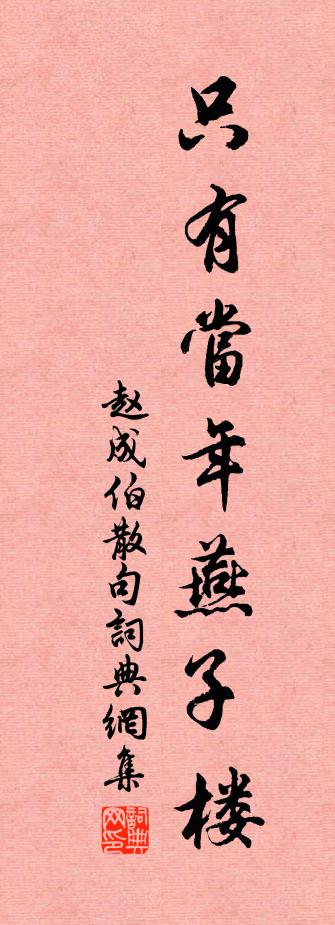 只有當年燕子楼
赵成伯散句詞典網集
詞典网印